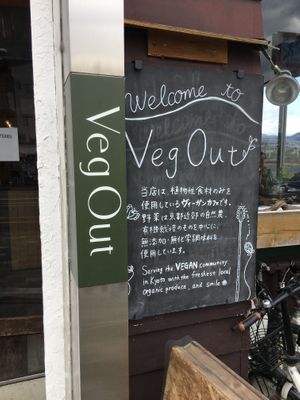 Veg Out
Welcome to
Veg Out
当店は、植物性食材のみを
使用しているヴィーガンカフェです。
野菜は京都近郊の自然農、
有機栽培のものを中心に、
無添加・無化学調味料を
使用しています。
Serving the VEGAN community
in Kyoto with the freshest local
organic produce, and smile